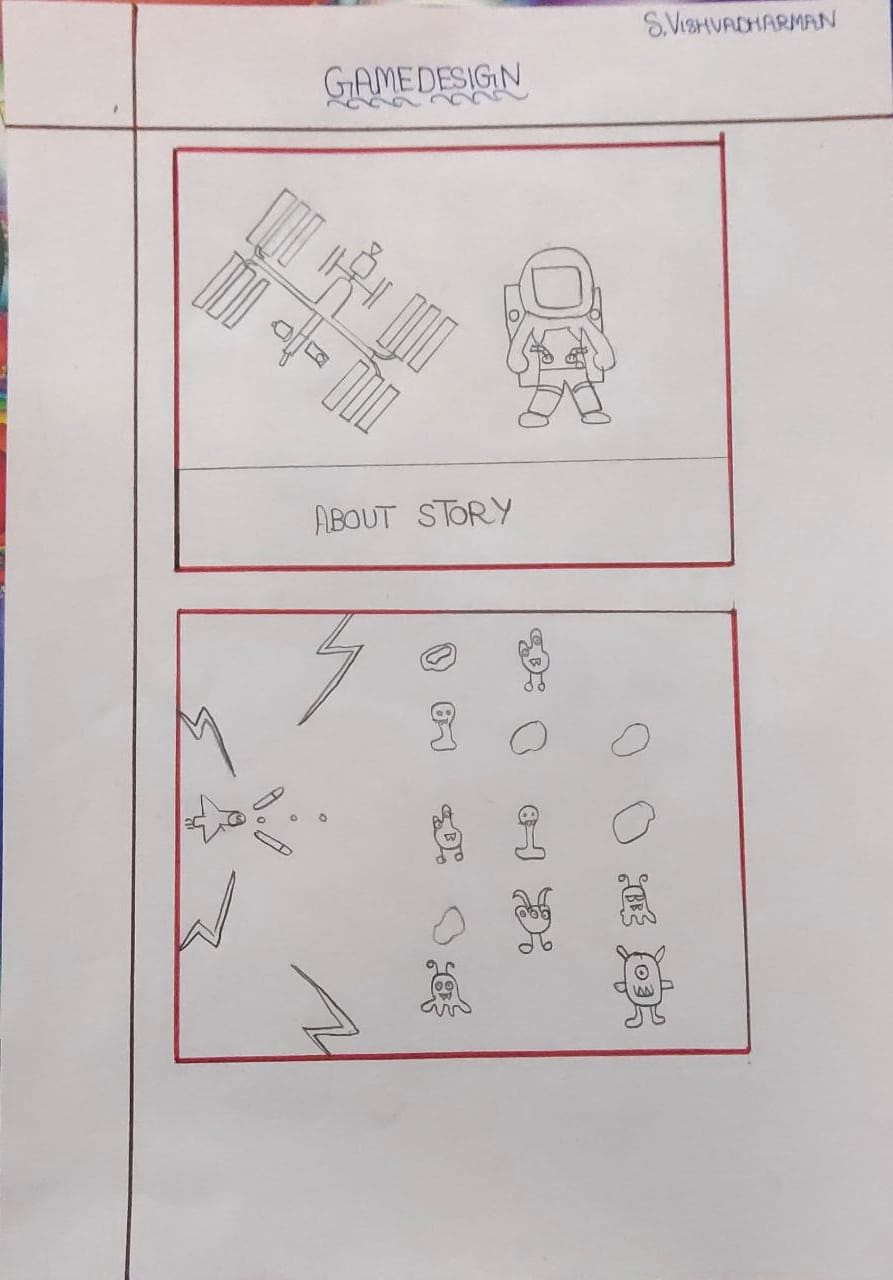 S.VISHVADHARMAN
GAMEDESIGN
ABOUT STORY